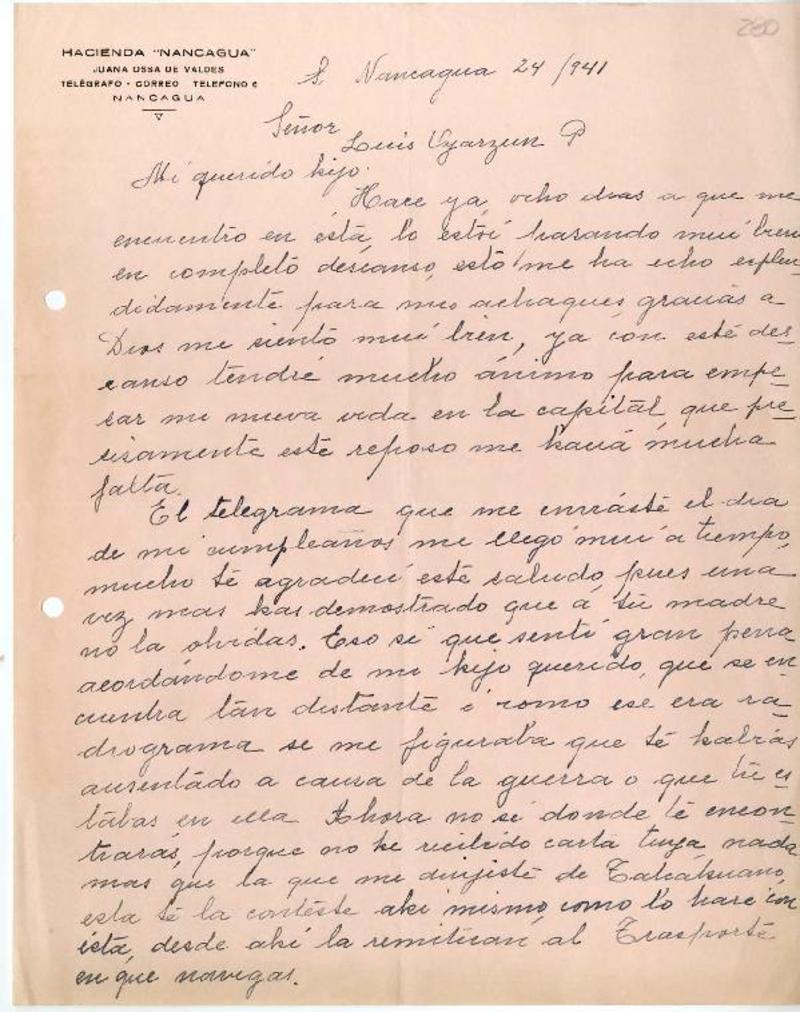 280
HACIENDA "NANCAGUA"
JUANA OSSA DE VALDES
TELÉGRAFO - CORREO TELEFONO 6
NANCAGUA
Nancagua 24/941
Señor
Luis Oyarzun P
Mi querido hijo.
Hace ya, ocho dias a que me
encuentro en ésta, lo estoi pasando mui bien
en completo descanso, esto me ha echo esplen
didamente para mis achaques gracias a
Dios me siento mui bien, ya con este des_
canso tendré mucho ánimo para empe_
sar mi nueva vida en la capital, que pre_
cisamente este reposo me hacia mucha
falta.
El telegrama que me enviaste el dia
de mi cumpleaños me llegó mui a tiempo,
mucho te agradecí este saludo, pues una
vez mas has demostrado que á tu madre
no la olvidas. Eso si que sentí gran pena
acordándome de mi hijo querido, que se en
cuentra tan distante i como ese era ra_
diograma se me figuraba que te habias
ausentado a causa de la guerra o que tu es_
tabas en ella Ahora no sé donde te encon_
traras, porque no he recibido carta tuya nada
mas que la que me dirijiste de Talcahuano,
esta te la contéste ahi mismo, como lo haré con
ésta, desde ahi la remitiran al Trasporte
en que navegas.